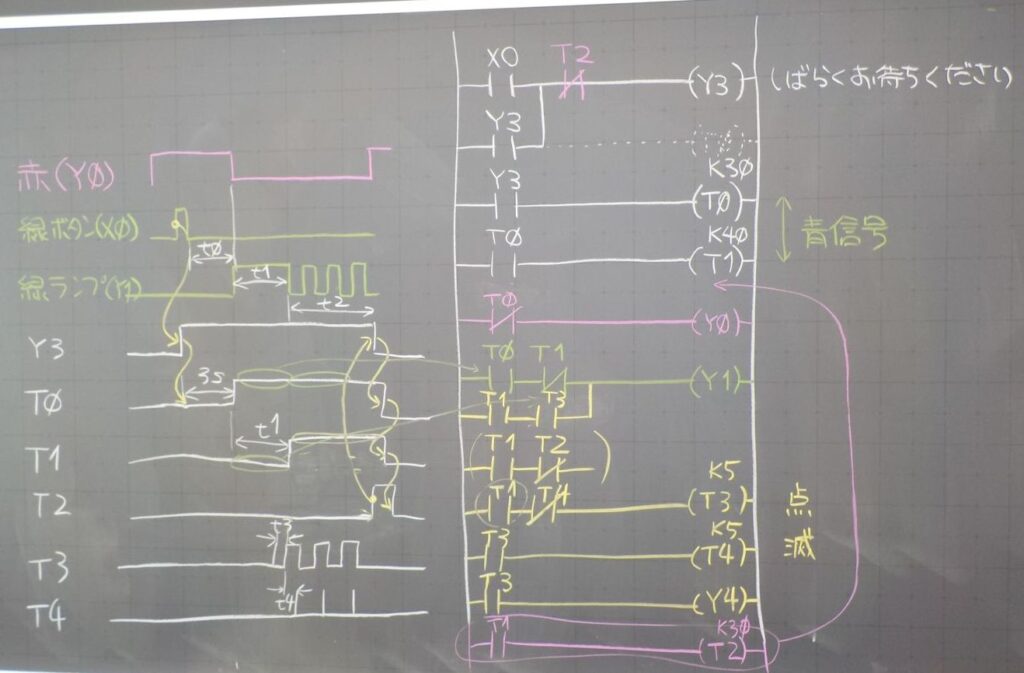 赤(Y0)
緑ボタン(X0)
t0
緑ランプ(Y1)
t1
t2
Y3
T0
3s
T1
t1
T2
T3
t3
T4
t4
X0 T2 (Y3) しばらくお待ちください
Y3
Y3 K30 (T0)
青信号
T0 K40 (T1)
T0 (Y0)
T0 T1 (Y1)
T1 T3
(T1 T2)
T1 T4 K5 (T3)
点滅
T3 K5 (T4)
T3 (Y4)
T1 K30 (T2)